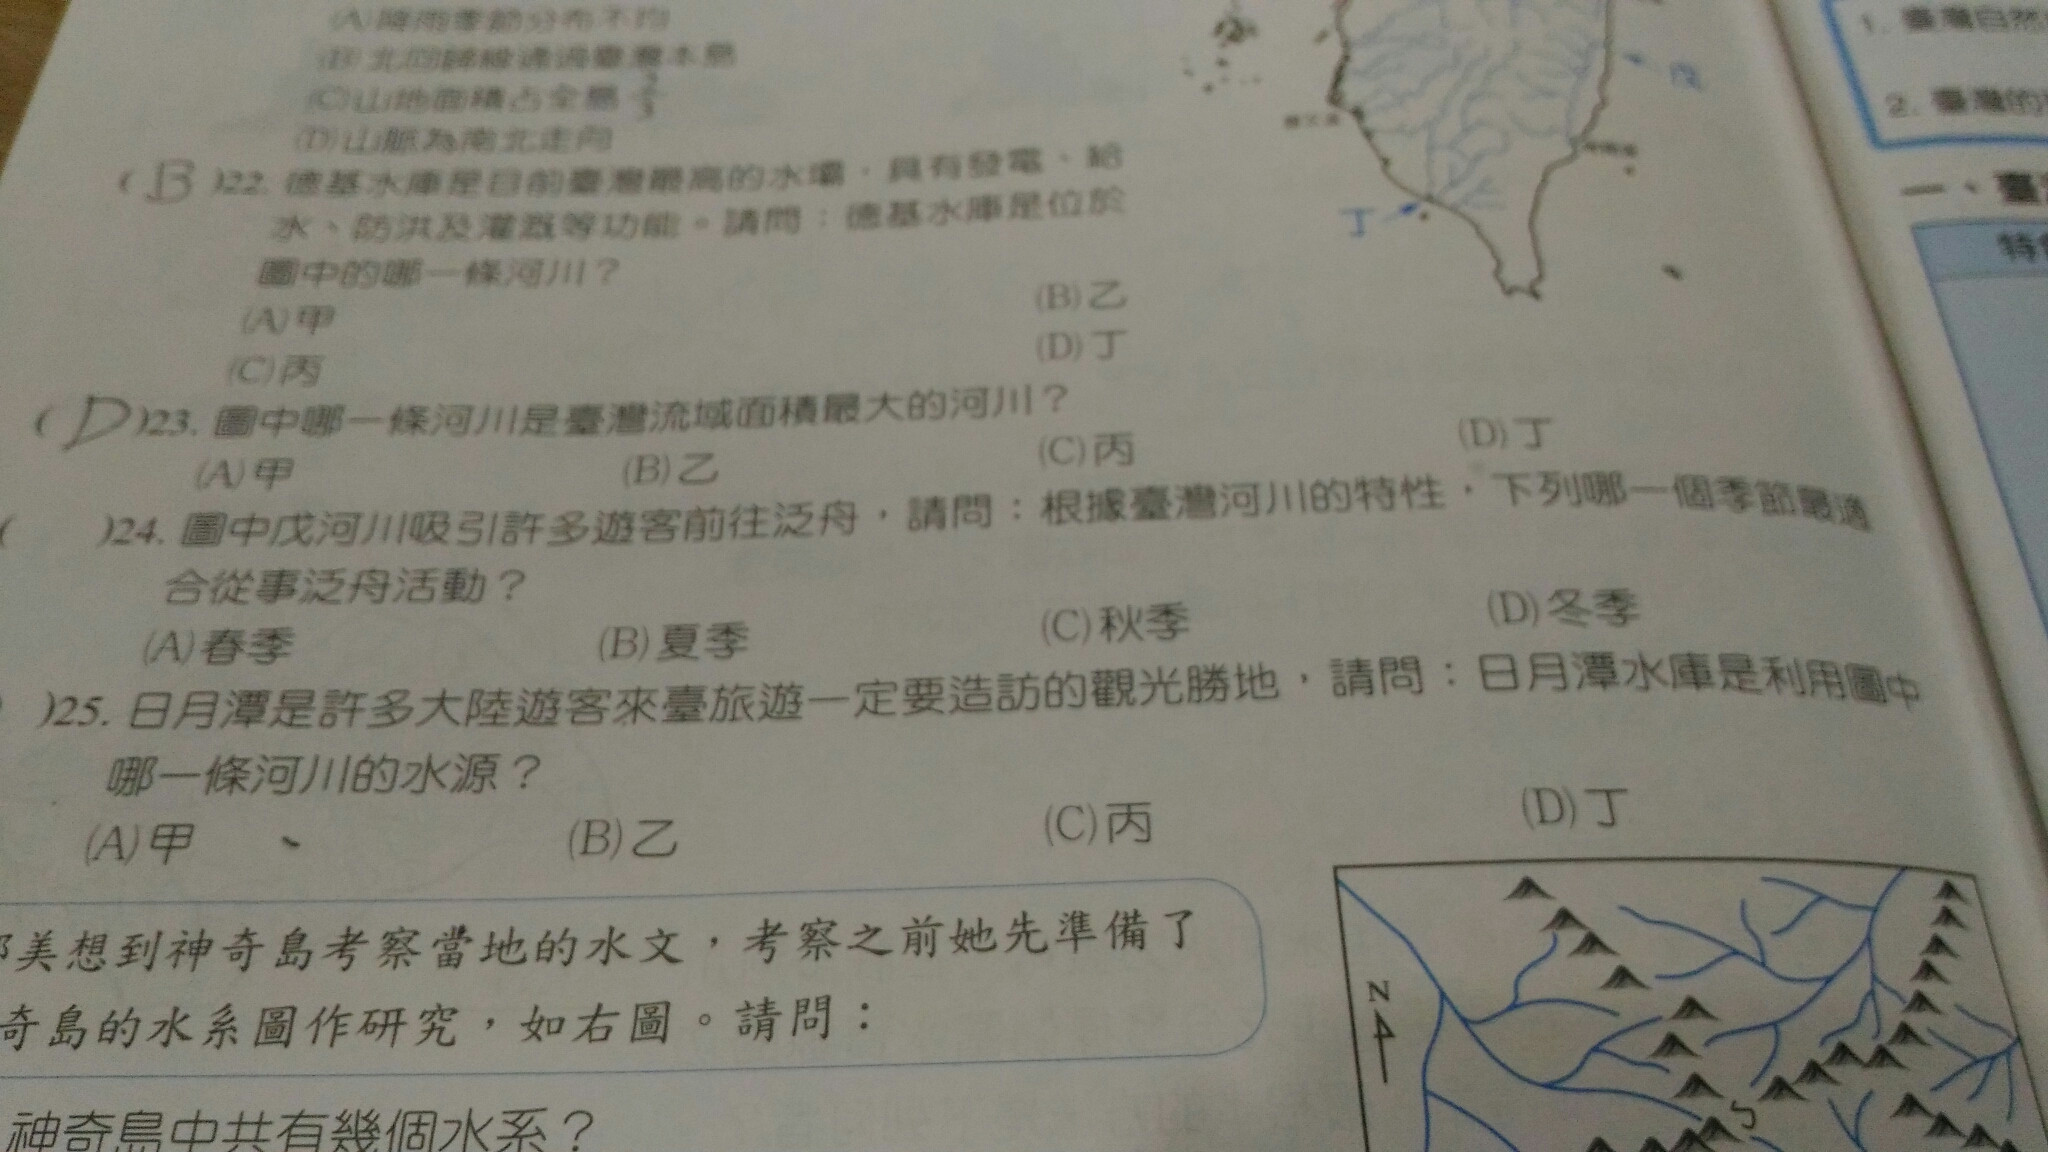 (A)降雨季節分布不均
(B)北回歸線通過臺灣本島
(C)山地面積占全島2/3
(D)山脈為南北走向
(B)22. 德基水庫是目前臺灣最高的水壩，具有發電、給
水、防洪及灌溉等功能。請問：德基水庫是位於
圖中的哪一條河川？
(A)甲 (B)乙
(C)丙 (D)丁
(D)23. 圖中哪一條河川是臺灣流域面積最大的河川？
(A)甲 (B)乙 (C)丙 (D)丁
( )24. 圖中戊河川吸引許多遊客前往泛舟，請問：根據臺灣河川的特性，下列哪一個季節最適
合從事泛舟活動？
(A)春季 (B)夏季 (C)秋季 (D)冬季
)25. 日月潭是許多大陸遊客來臺旅遊一定要造訪的觀光勝地，請問：日月潭水庫是利用圖中
哪一條河川的水源？
(A)甲 (B)乙 (C)丙 (D)丁
美想到神奇島考察當地的水文，考察之前她先準備了
奇島的水系圖作研究，如右圖。請問：
神奇島中共有幾個水系？
戊
丁
N
5
1. 臺灣自然
2. 臺灣的
一、臺
特